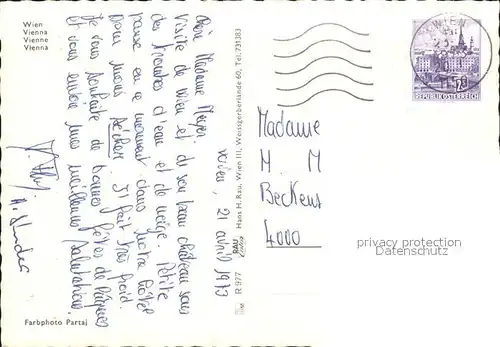 Wien
Vienna
Vienne
Vienna
Wien, 21 avril 1973
Chère Madame Meyer.
Visite de Wien et de son beau château sous
des trombes d'eau et de neige. Petite
pause en ce moment dans notre hôtel
pour nous sécher. Il fait très froid.
Je vous souhaite de bonnes fêtes de Pâques
et vous envoie mes meilleures salutations.
Farbphoto Partaj
Hans H. Rau, Wien III, Weissgerberlände 60, Tel. 731383
RAU
R 977
WIEN
REPUBLIK ÖSTERREICH
Madame
M. M
Beckens
4000
privacy protection
Datenschutz